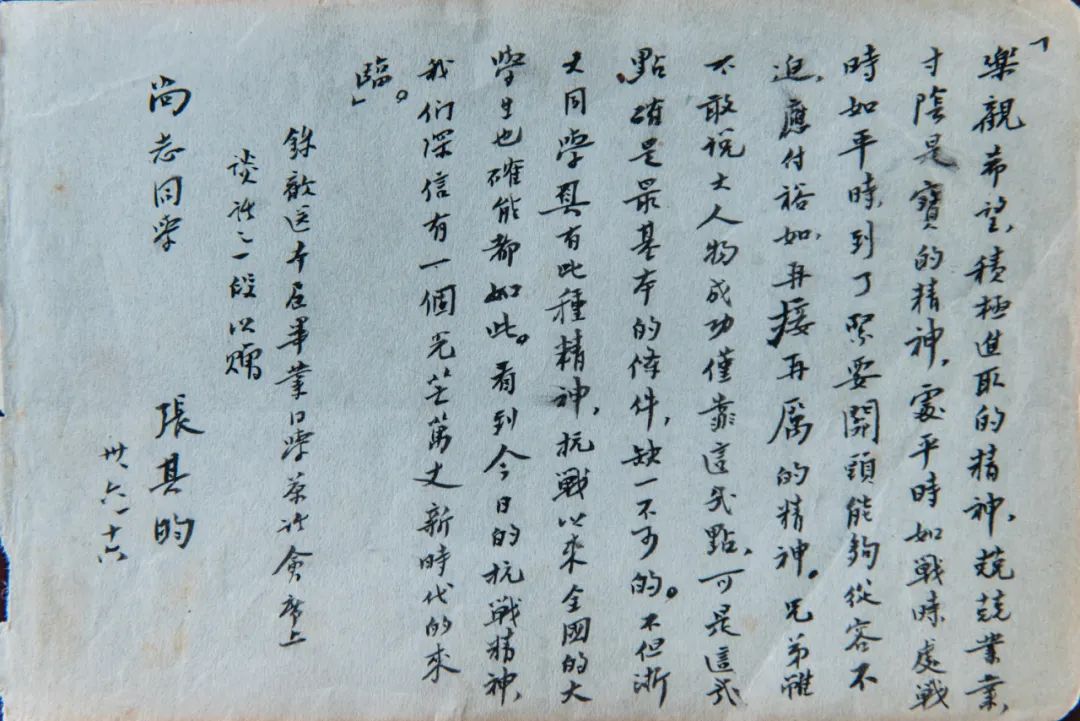 「樂觀希望,積極進取的精神,兢兢業業,
寸陰是寶的精神,處平時如戰時處戰
時如平時,到了緊要關頭能夠從容不
迫,應付裕如,再接再厲的精神。兄弟雖
不敢說大人物成功僅靠這幾點,可是這幾
點,確是最基本的條件,缺一不可的。不但浙
大同學具有此種精神,抗戰以來全國的大
學生也確能都如此。看到今日的抗戰精神,
我们深信有一個光芒萬丈新時代的來
臨。」
錄歡送本屆畢業同學茶話會席上
談話之一段以贈
尚志同學
張其昀
卅、六、十六